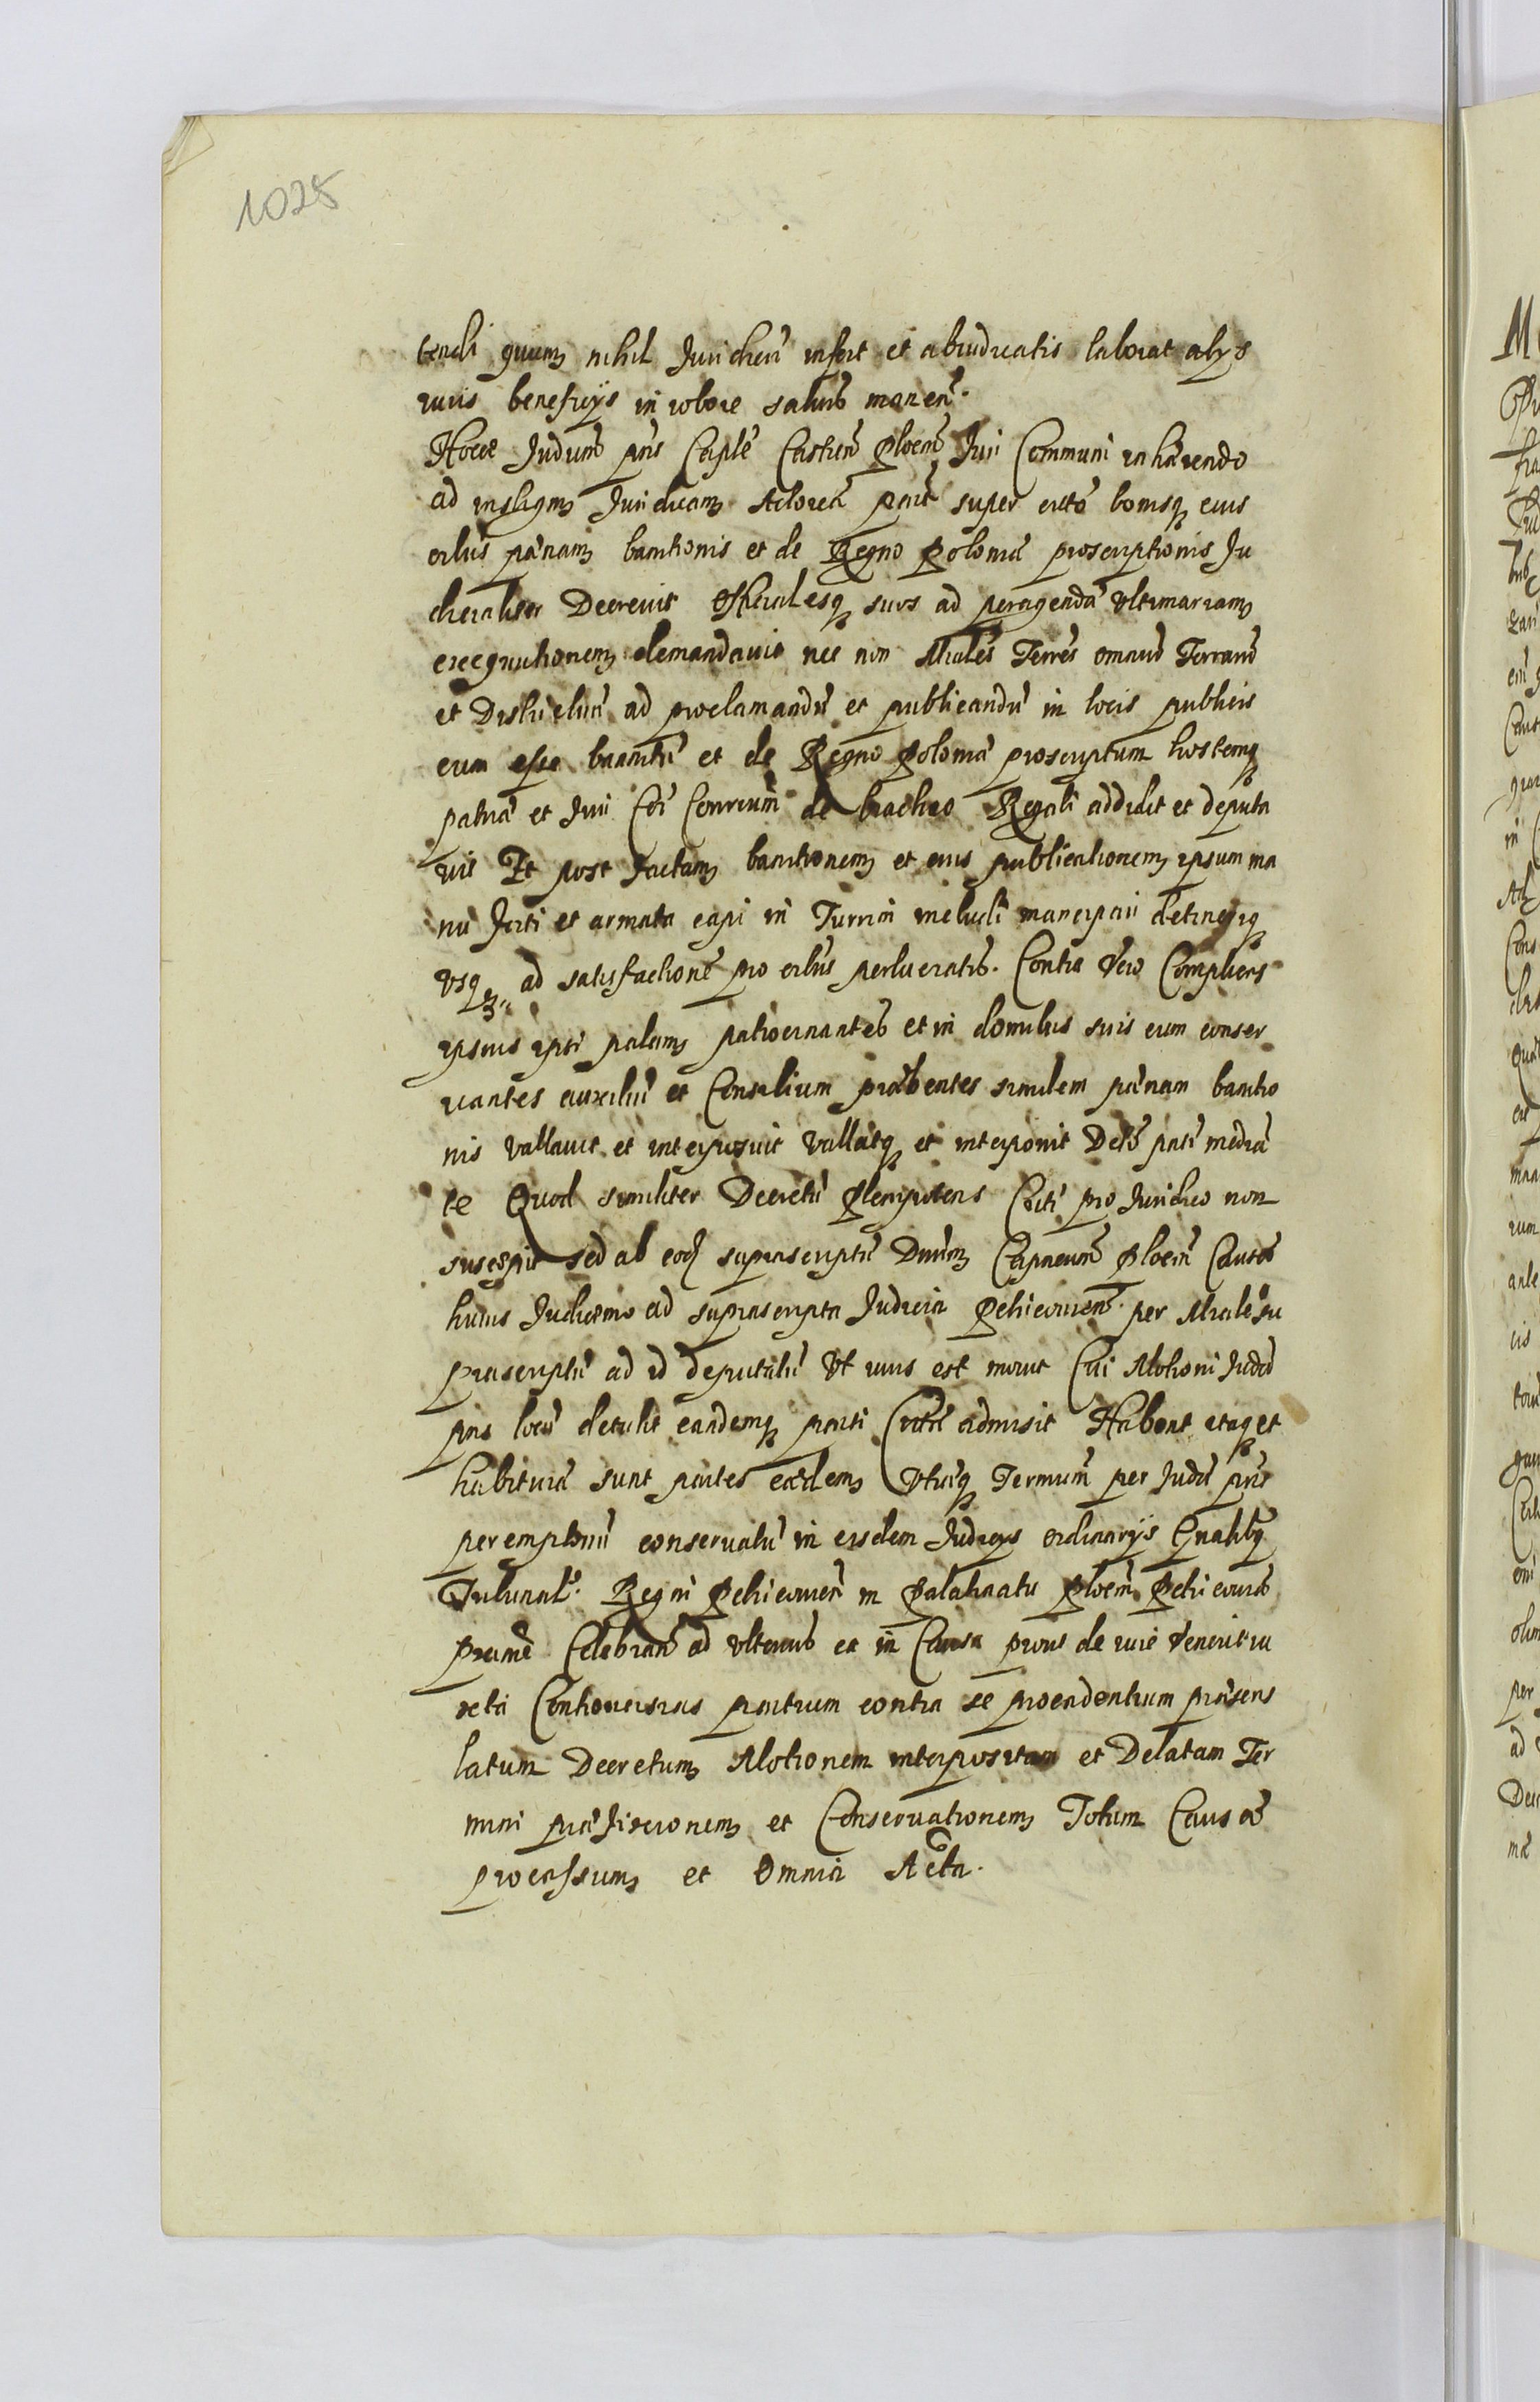 1028
tendi quam nihil Juridicũ infert et abiudicatis laborat alijs
iuris beneficijs in robore saluis manen.
Hocce Judium pñs Caplẽ Castren Plocen Juri Communi inhærendo
ad instigam Juridicam Actoreæ part super citto bonisq eius
oĩbus pænam bannitionis et de Regno Poloniæ proscriptionis Ju
dicialiter Decrevit Officialesq suos ad peragendã Vltimariam
exequutionem demandavit nec non Mĩnales Terrẽs omnium Terrarũ
et Districtuũ ad proclamandũ et publicandũ in locis publicis
eum esse bannitũ et de Regno Poloniæ proscriptum hostemq
patriæ et Juri Cõi Convictũ de brachio Regali addidit et deputa
vit Et post factam bannitionem et eius publicationem ipsum ma
nu forti et armata capi in Turrim includi mancipari detineriq
vsq ad satisfactionẽ pro oĩbus perlucratis. Contra Vero Complices
ipsius ipsi palam patrocinantes et in domibus suis eum conser
vantes auxiliũ et Consilium præbentes similem pænam bannitio
nis vallavit et interposuit vallatq et interponit Decto pñti median
te Quod similiter Decretũ Plenipotens Citti pro Juridico non
suscepit sed ab eod suprascriptũ Dnum Capneum Plocen Causã
huius Judicem ad suprascripta Judicia Petricovien. per Mĩnalẽ su
prascriptũ ad id deputatũ Vt iuris est movit Cui Motioni Judiũ
pñs locũ detulit eandemq parti Cittæ admisit Habent itaq et
habituræ sunt partes eædem Vtræq Terminũ per Judiũ pñs
peremptoriũ conservatũ in eisdem Judicijs ordinarijs Gnalibq
Tribunal. Regni Petricovien in Palatinatu Plocen Petricoviæ
proxime Celebran ad vlterius ea in Causa prout de iure Venerit iu
xta Controversias partium contra se procedentium præsens
latum Decretum Motionem interpositam et Delatam Ter
mini præfixionem et Conservationem Totum Causæ
processum et Omnia Acta.